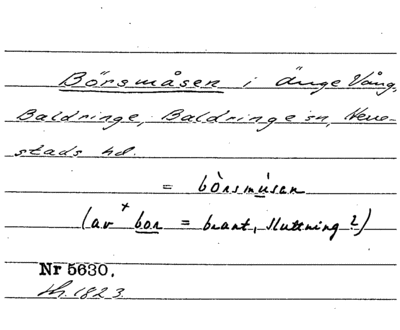 Börsmåsen i änge Vång,
Baldringe, Baldringe sn, Herre-
stads hd.
= bòrsmúsan
(av + bor = brant, sluttning?)
Nr 5630.
sk. 1823.